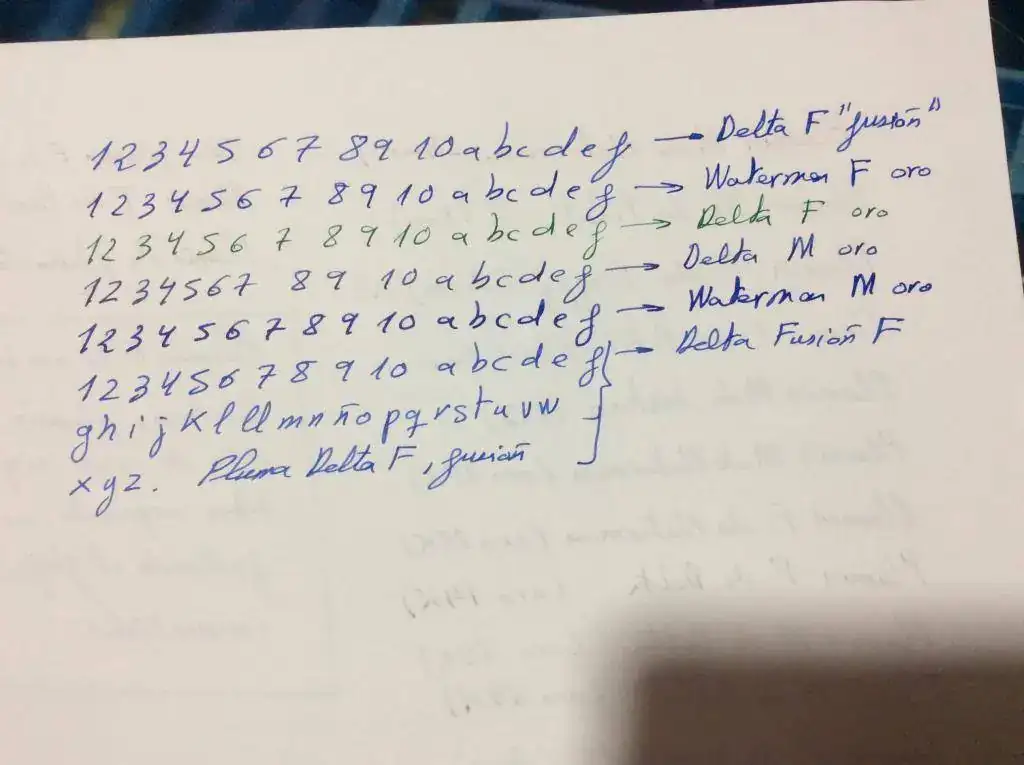 1 2 3 4 5 6 7 8 9 10 a b c d e f → Delta F "fusión"
1 2 3 4 5 6 7 8 9 10 a b c d e f → Waterman F oro
1 2 3 4 5 6 7 8 9 10 a b c d e f → Delta F oro
1 2 3 4 5 6 7 8 9 10 a b c d e f → Delta M oro
1 2 3 4 5 6 7 8 9 10 a b c d e f → Waterman M oro
1 2 3 4 5 6 7 8 9 10 a b c d e f → Delta Fusión F
g h i j k l ll m n ñ o p q r s t u v w
x y z. Pluma Delta F, fusión